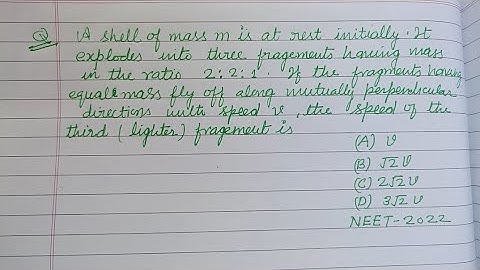 Q A shell of mass m is at rest initially. It
explodes into three fragements having mass
in the ratio 2:2:1. If the fragments having
equal mass fly off along mutually perpendicular
directions with speed v, the speed of the
third (lighter) fragement is
(A) v
(B) √2v
(C) 2√2v
(D) 3√2v
NEET-2022